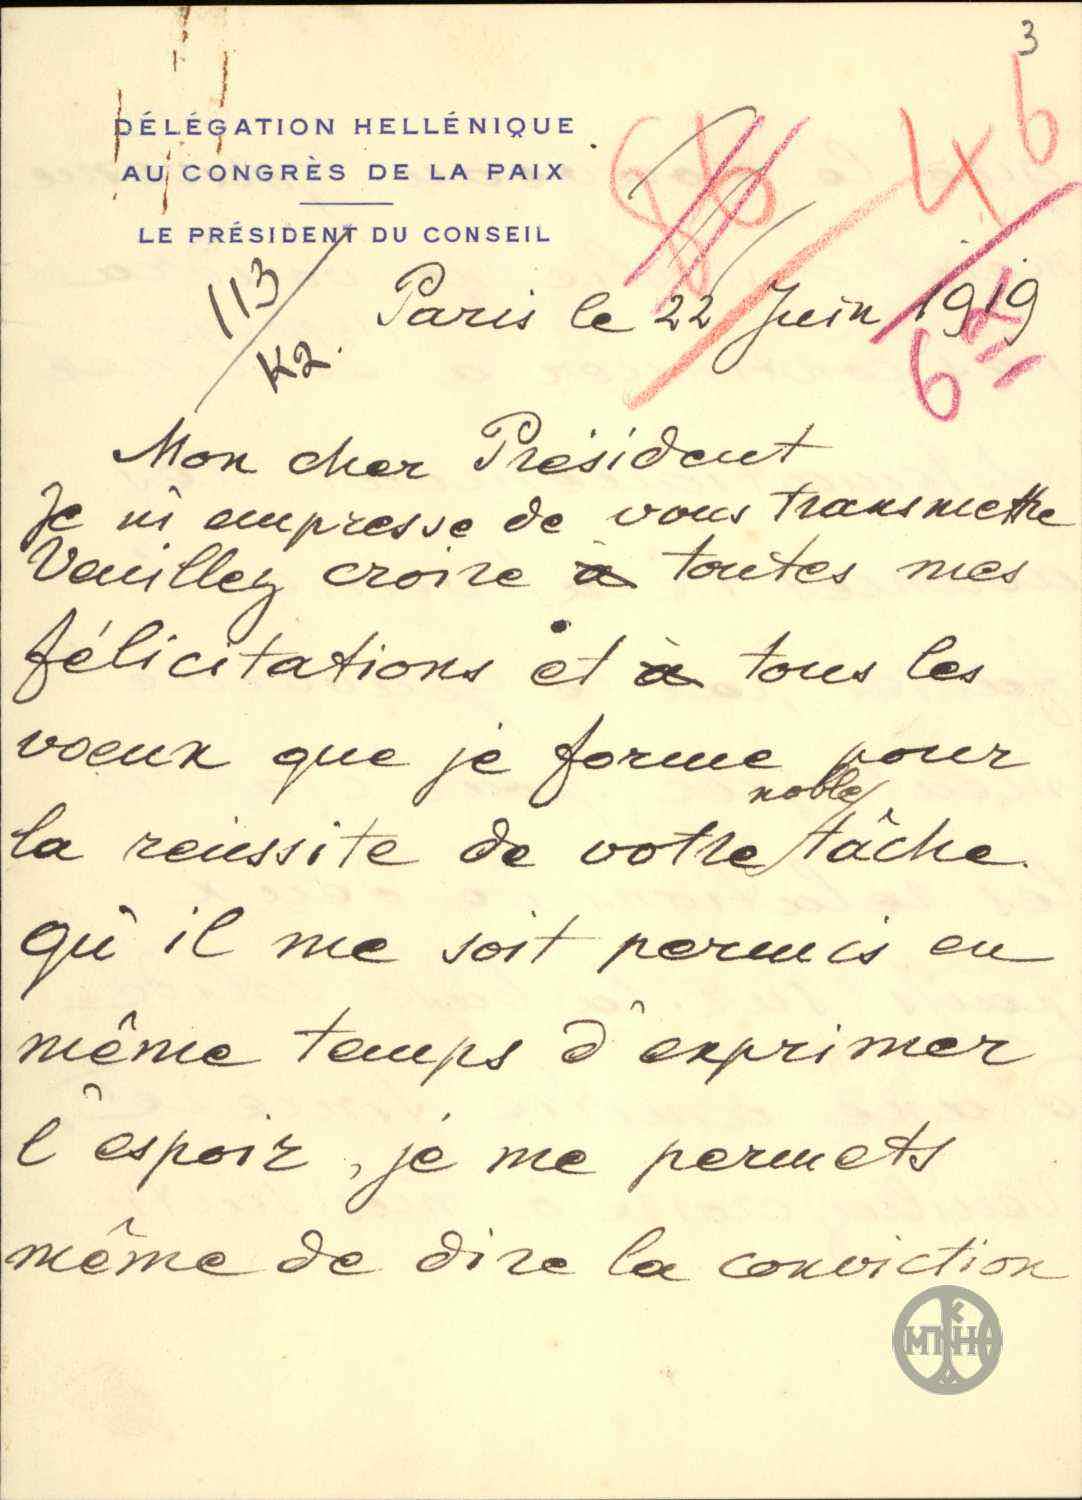 3
DÉLÉGATION HELLÉNIQUE
AU CONGRÈS DE LA PAIX
LE PRÉSIDENT DU CONSEIL
113/K2.
46
Paris le 22 Juin 1919
6
Mon cher Président
Je m'empresse de vous transmettre
Veuillez croire à toutes mes
félicitations et à tous les
voeux que je forme pour
noble
la reüssite de votre tâche.
qu'il me soit permis en
même temps d'exprimer
l'espoir, je me permets
même de dire la conviction
ΜΠΗ